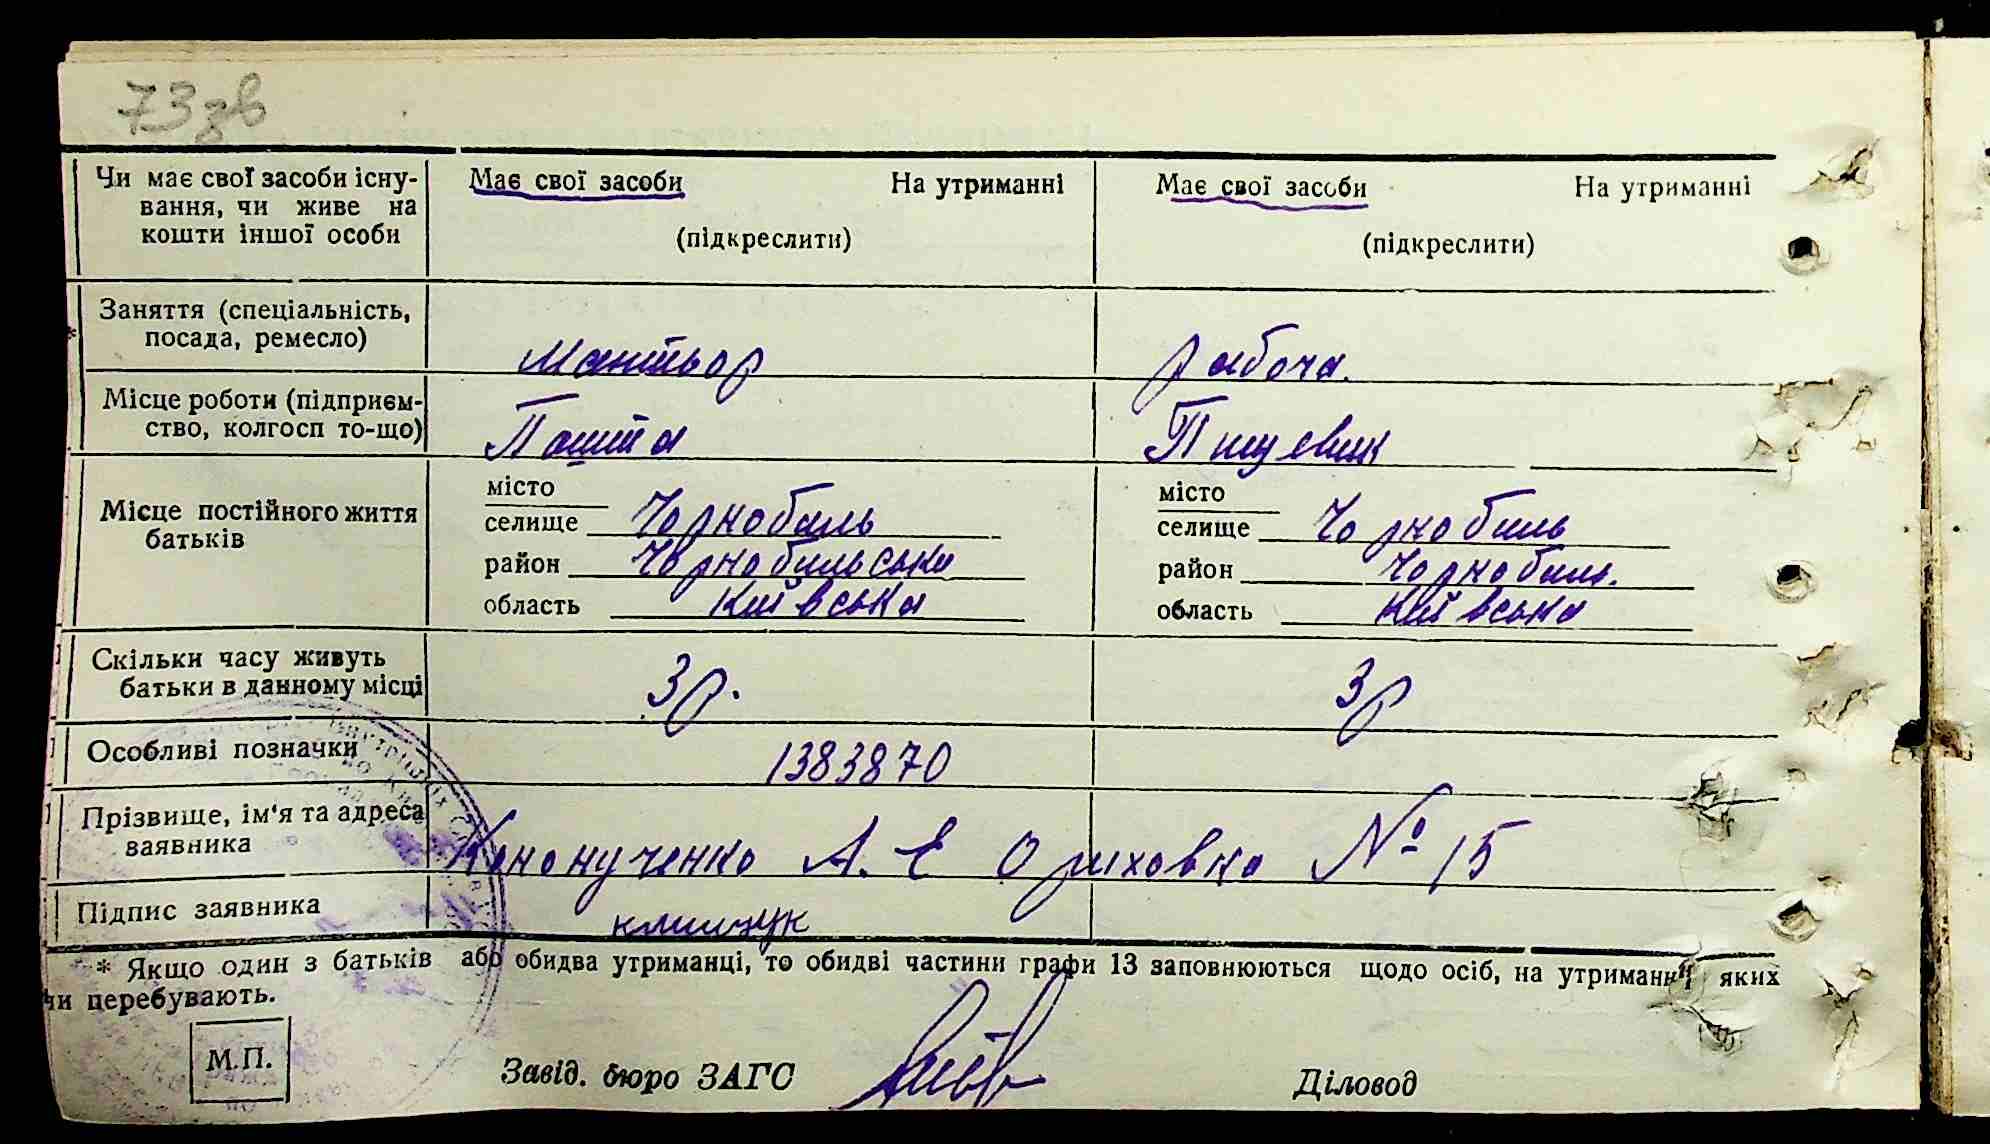 73зв
Чи має свої засоби існу- Має свої засоби На утриманні Має свої засоби На утриманні
вання, чи живе на
кошти іншої особи (підкреслити) (підкреслити)
Заняття (спеціальність,
* посада, ремесло) Мантьор рабоча.
Місце роботи (підприєм-
ство, колгосп то-що) Пошта Пищевик
місто місто
Місце постійного життя селище Чорнобиль селище Чорнобиль
батьків район Чорнобильськи район Чорнобиль.
область Київська область Київська
Скільки часу живуть
батьки в данному місці 3 р. 3 р
Особливі позначки 1383870
Прізвище, ім'я та адреса
заявника Конончученко А. Е Ориховка № 15
Підпис заявника клищук
* Якщо один з батьків або обидва утриманці, то обидві частини графи 13 заповнюються щодо осіб, на утриманні яких
чи перебувають.
М.П. Завід. бюро ЗАГС Діловод